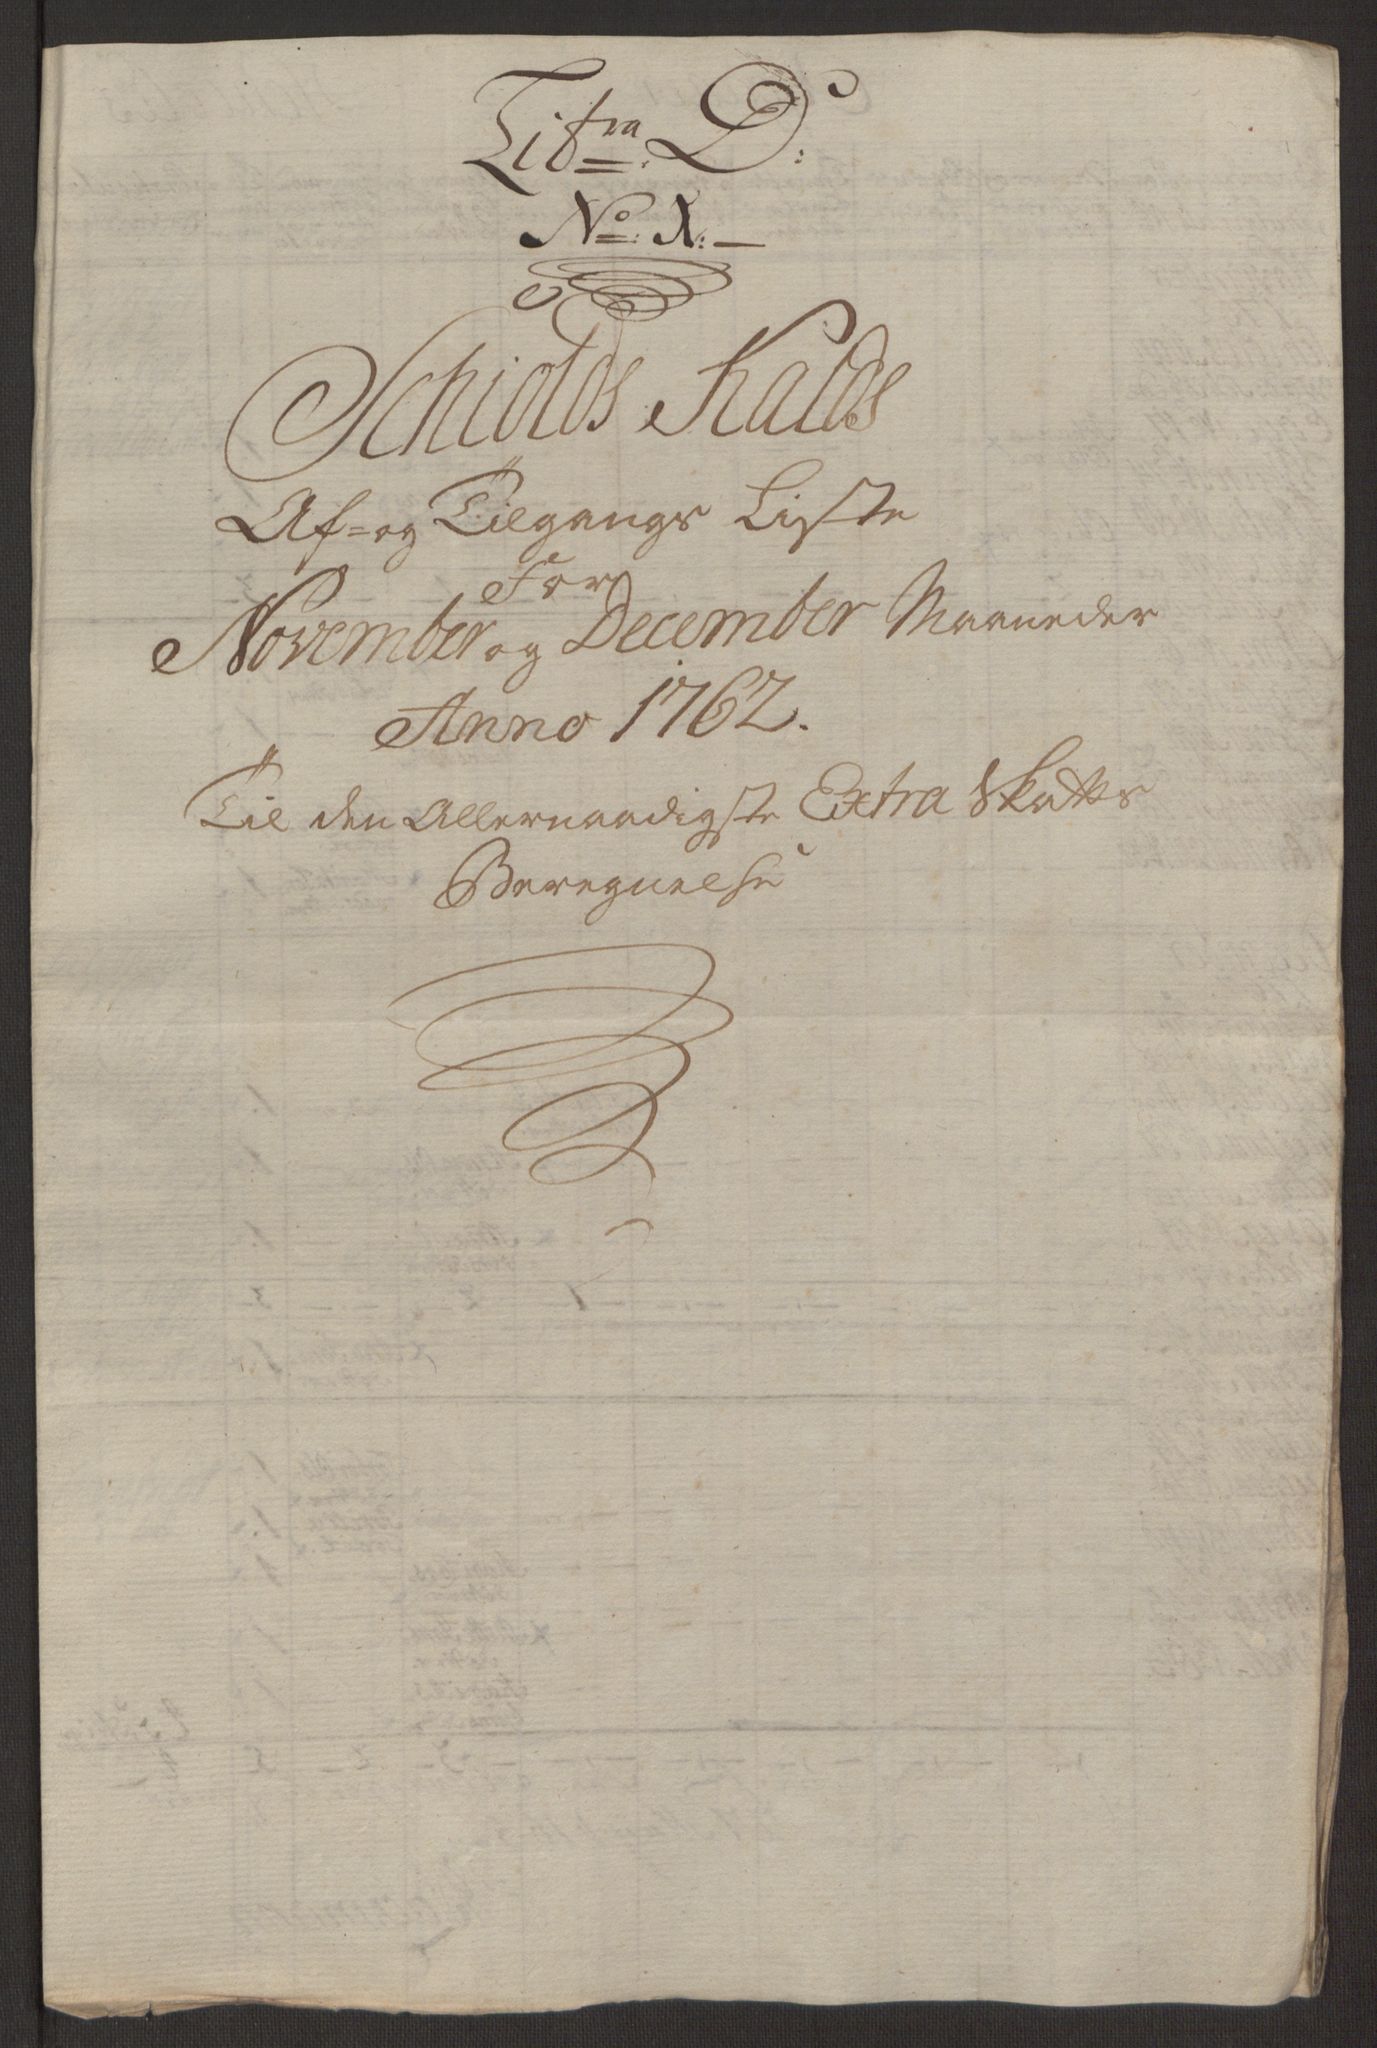 Litra D:
No: X:
Schiolds Kalds
Af- og Tilgangs Liste
For
November og December Maaneder
Anno 1762.
Til den Allernaadigste Extra Skatts
Beregnelse